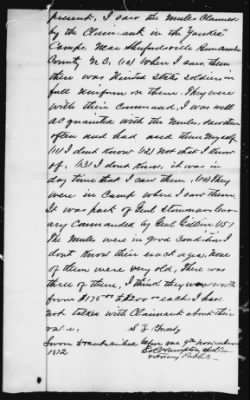 present, I saw the Mules Claimed
by the Claimant in the "Yankee"
Camp Near
County N.C. (10) When I saw them
there was United States soldiers in
full Uniform on them. They were
with their Command, I was well
acquainted with the Mules, saw them
often and had used them Myself
(11) I dont Know (12) Not that I know
of, (13) I dont Know, it was in
day time that I saw them, (14) They
were in Camp when I saw them,
It was part of Genl Stoneman
Commanded by Genl Gillem US,
The Mules were in good Condition I
dont Know their exact ages, None
of them were very old, There was
three of them, I think they were worth
from $175 to $200 each I have
not talked with Claimant about this
case. S J
Sworn to & subscribed before me 9th
1872
Notary Public